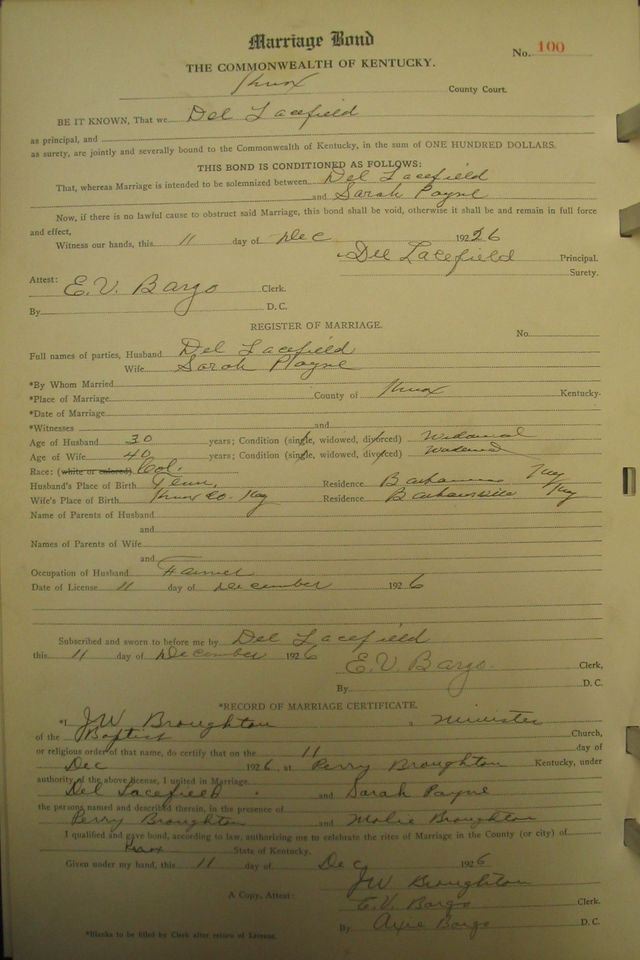 Marriage Bond
No. 100
THE COMMONWEALTH OF KENTUCKY.
Knox County Court.
BE IT KNOWN, That we Del Lacefield
as principal, and
as surety, are jointly and severally bound to the Commonwealth of Kentucky, in the sum of ONE HUNDRED DOLLARS.
THIS BOND IS CONDITIONED AS FOLLOWS:
That, whereas Marriage is intended to be solemnized between Del Lacefield
and Sarah Payne
Now, if there is no lawful cause to obstruct said Marriage, this bond shall be void, otherwise it shall be and remain in full force
and effect,
Witness our hands, this 11 day of Dec 1926
Del Lacefield Principal.
Surety.
Attest: E.V. Bargo Clerk.
By D.C.
REGISTER OF MARRIAGE.
No.
Full names of parties, Husband Del Lacefield
Wife Sarah Payne
*By Whom Married
*Place of Marriage County of Knox Kentucky.
*Date of Marriage
*Witnesses and
Age of Husband 30 years; Condition (single, widowed, divorced) Widowed
Age of Wife 40 years; Condition (single, widowed, divorced) Widowed
Race: (white or colored) Col.
Husband's Place of Birth Tenn, Residence Ky
Wife's Place of Birth Knox Co. Ky Residence Barbourville Ky
Name of Parents of Husband
and
Names of Parents of Wife
and
Occupation of Husband Farmer
Date of License 11 day of December 1926
Subscribed and sworn to before me by Del Lacefield
this 11 day of December 1926
E.V. Bargo Clerk,
By D.C.
*RECORD OF MARRIAGE CERTIFICATE.
*I JW Broughton a minister
of the Baptist Church,
or religious order of that name, do certify that on the 11 day of
Dec 1926, at Perry Broughton Kentucky, under
authority of the above license, I united in Marriage
Del Lacefield and Sarah Payne
the persons named and described therein, in the presence of
Perry Broughton and Molie Broughton
I qualified and gave bond, according to law, authorizing me to celebrate the rites of Marriage in the County (or city) of
Knox State of Kentucky.
Given under my hand, this 11 day of Dec 1926
JW Broughton
A Copy, Attest: E.V. Bargo Clerk.
By Axie Bargo D.C.
*Blanks to be filled by Clerk after return of License.